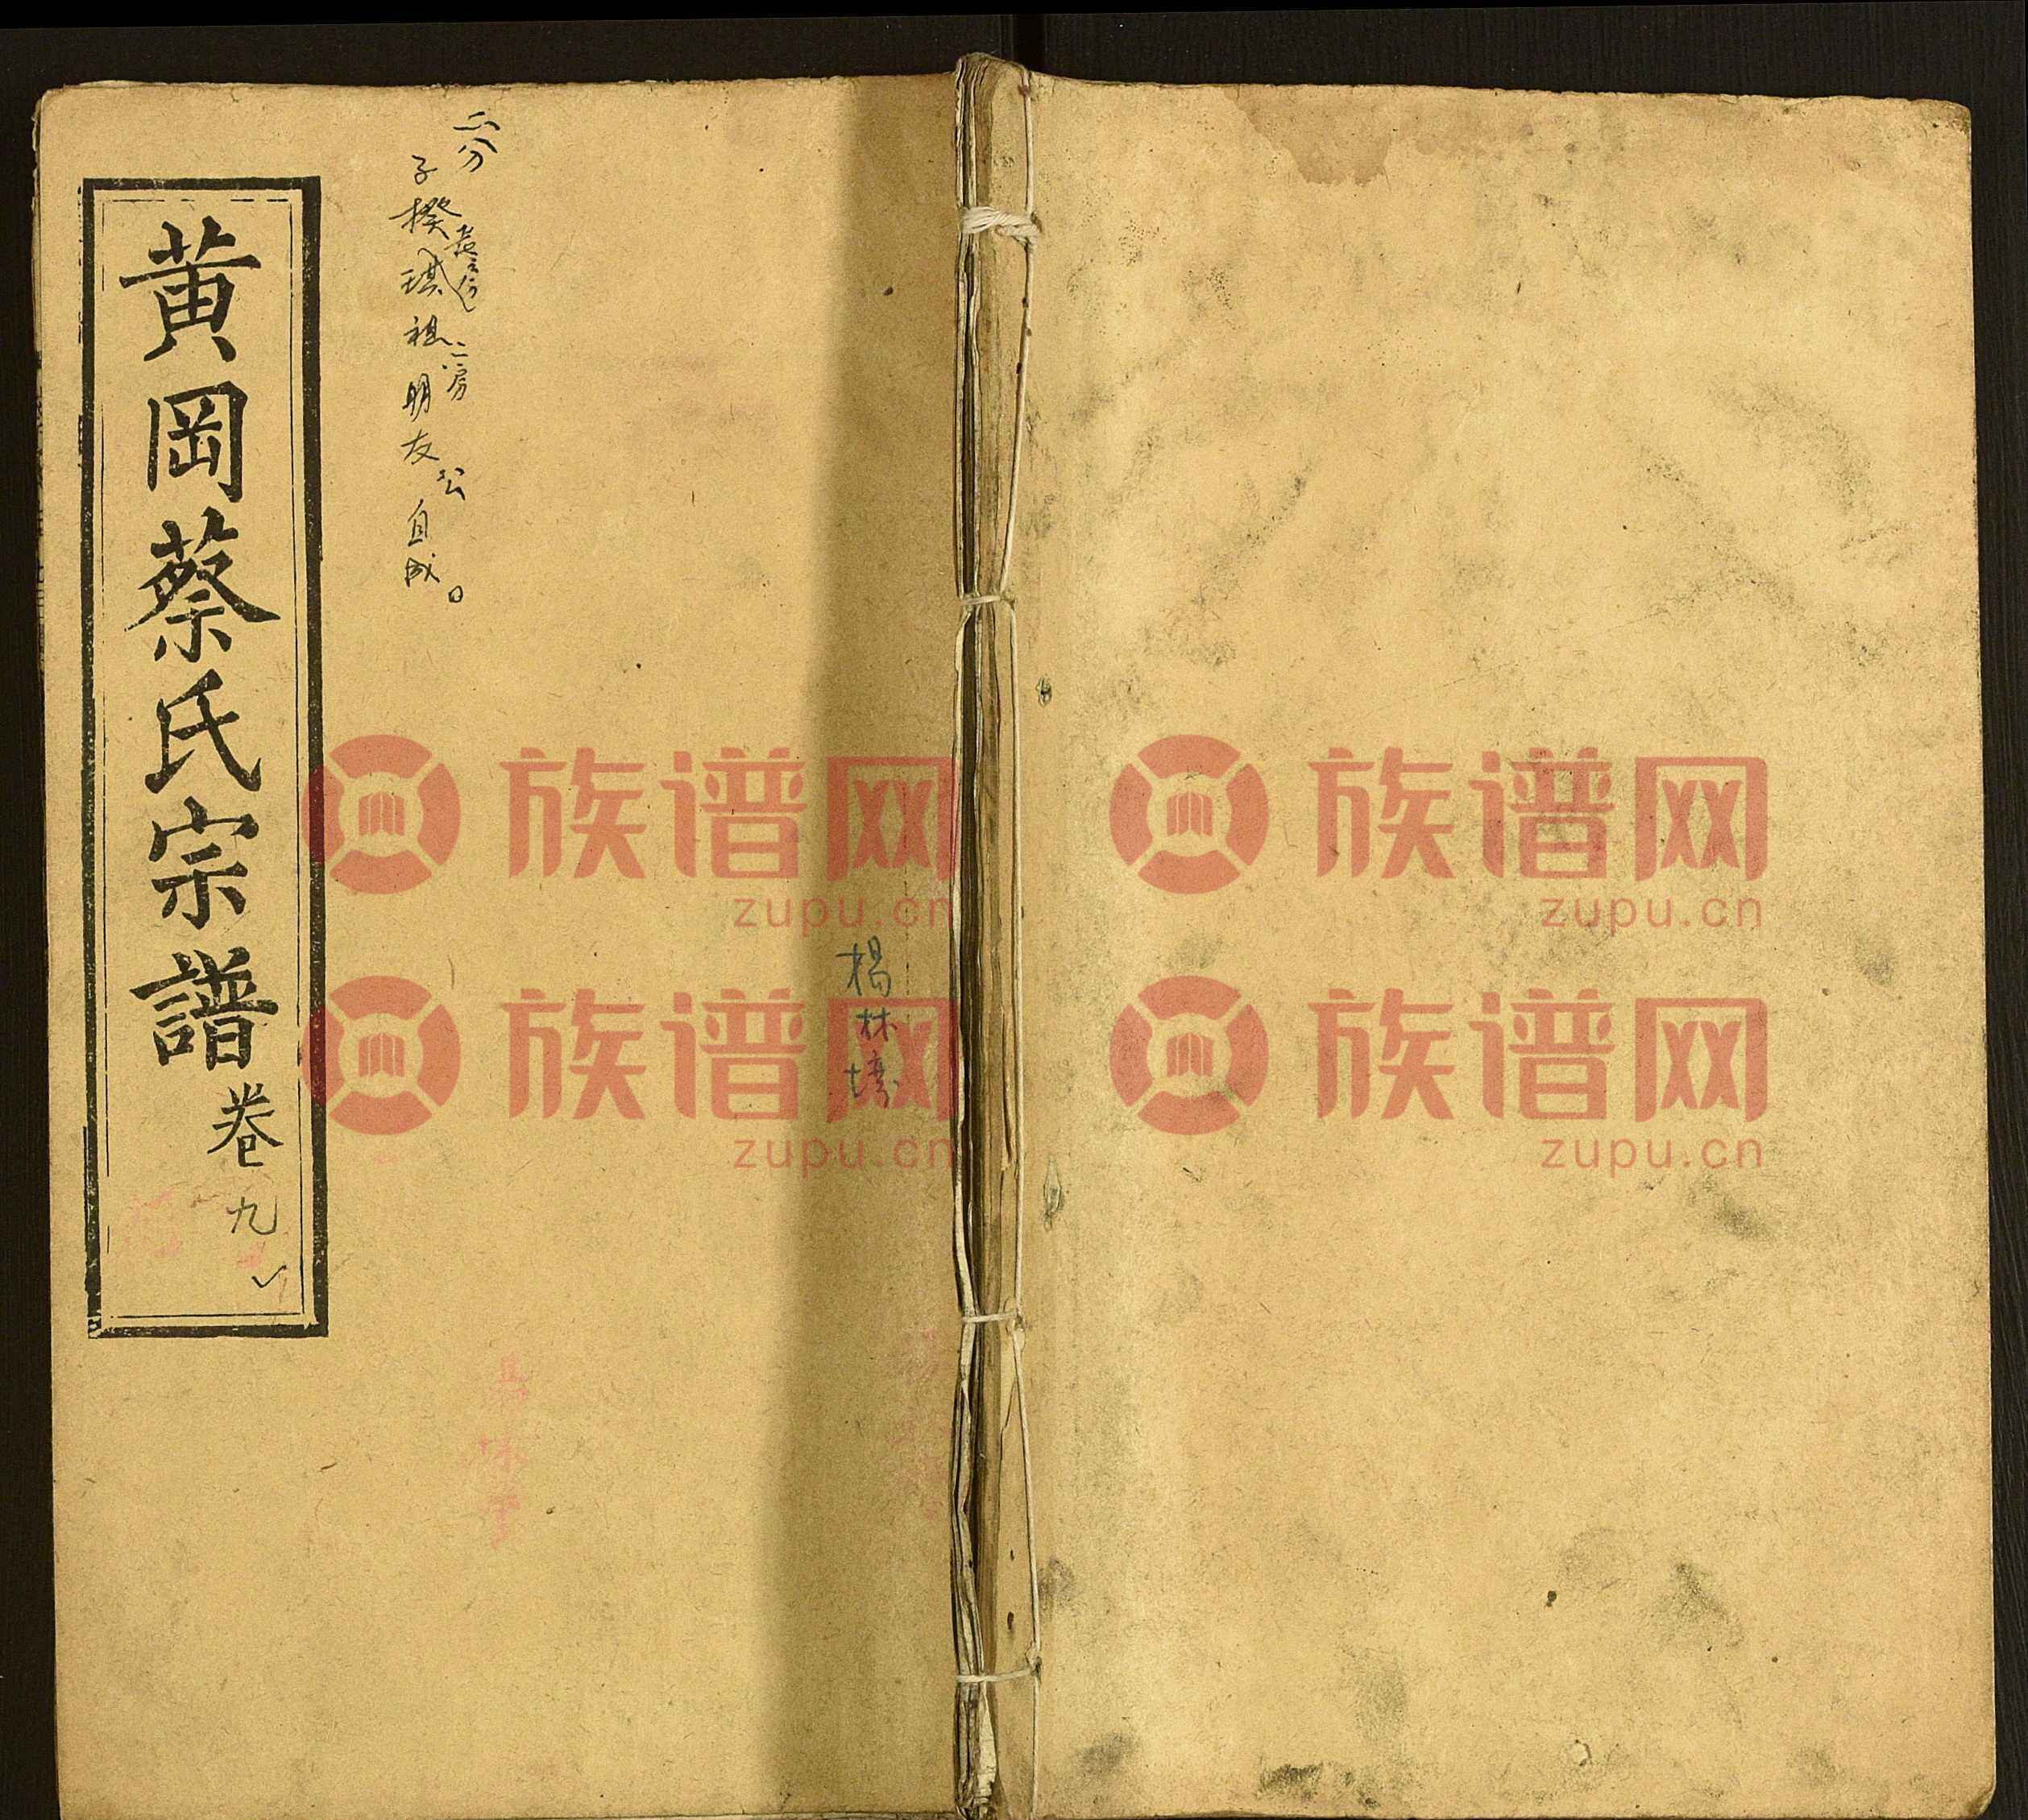 黄岡蔡氏宗譜 卷九
二分
子揆琪祖明友公自成。
二房
楊林壋
族谱网
zupu.cn
族谱网
zupu.cn
族谱网
zupu.cn
族谱网
zupu.cn